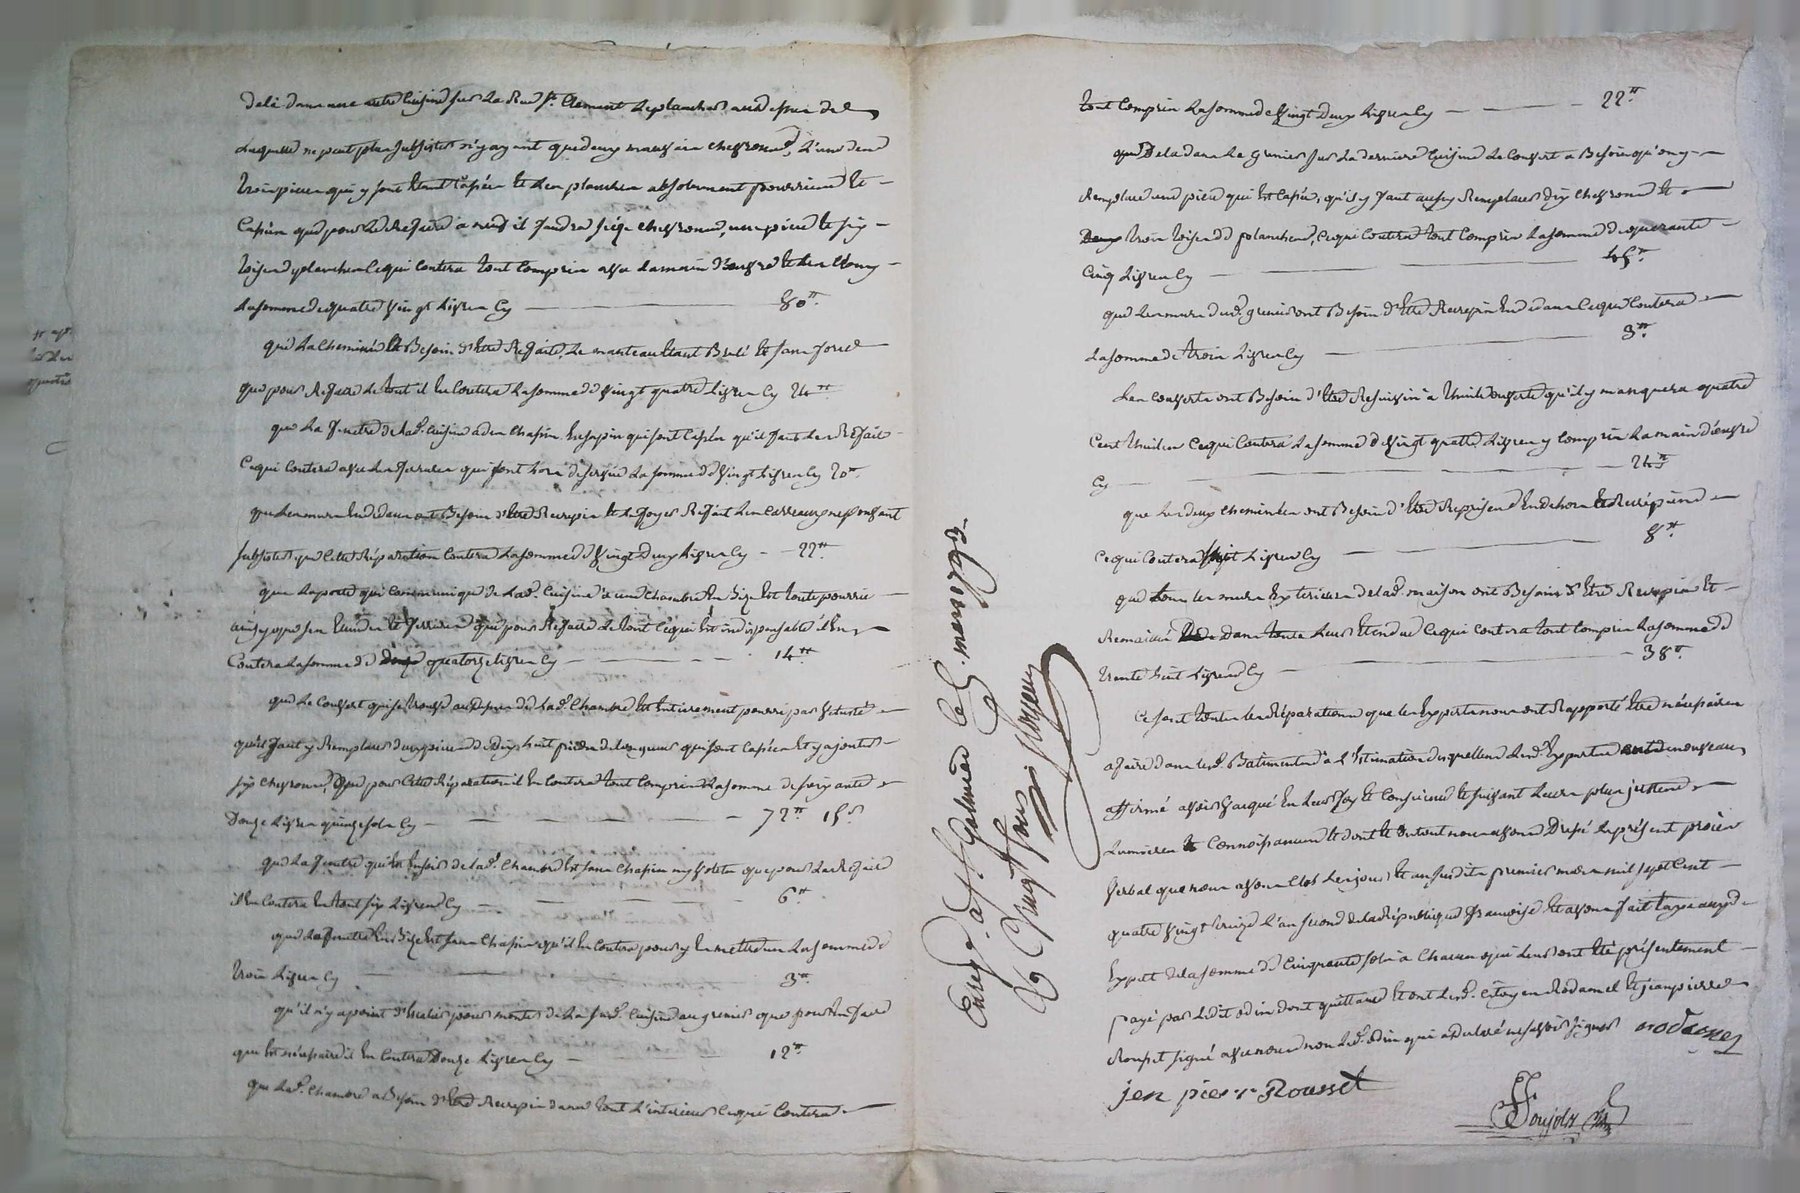 delà dans une autre Cuisine sur La Rue St. Clement Le plancher au dessus de
Laquelle ne peut plus subsister n'y ayant que deux mauvais chevrons, L'une des
trois pieces qui y sont étant Cassée et Les planches absolument pourries et
Cassées que pour Le Refaire à neuf il faudra seize chevrons, une piece et six
toises planches Ce qui Coutera tout Compris avec La main d'œuvre et Les Cloux
La somme de quatre vingt Livres Cy 80tt.
que La Cheminée a Besoin d'être Refaite, Le manteau étant Brulé et sans force
que pour Refaire Le tout il En Coutera La somme de vingt quatre Livres Cy 24tt.
que La fenetre de Lad. Cuisine a des Chassis En sapin qui sont Cassés qu'il faut Les Refaire
Ce qui Coutera avec Les ferrures qui sont hors de service La somme de vingt Livres Cy 20tt.
que Les murs En dedans ont Besoin d'être Recrepis et Le foyer Refait Les Carreaux ne pouvant
subsister que Cette Réparation Coutera La somme de vingt deux Livres Cy 22tt.
que La porte qui Communique de Lad. Cuisine à une Chambre En Bize est toute pourrie
ainsy que ses Liindes et ferrures que pour Refaire Le tout Ce qui est indispensable il En
Coutera La somme de quatorze Livres Cy 14tt.
que Le Couvert qui se trouve au dessus de Lad. Chambre est Entierement pourri par vetusté
qu'il faut y Remplacer deux pieces de dix huit pieds de longueur qui sont Cassées Et y ajouter
six chevrons, Que pour Cette Réparation il En Coutera tout Compris La somme de soixante
Douze Livres quinze sols Cy 72tt 15s
que La fenetre qui est En soir de Lad. Chambre est sans Chassis ny volets que pour La Refaire
il En Coutera En tout six Livres Cy 6tt.
que La fenetre En Bize est sans Chassis qu'il En Coutera pour y En mettre un La somme de
trois Livres Cy 3tt.
qu'il n'y a point d'Escalier pour monter de La susd. Cuisine au grenier que pour En faire
qui est nécessaire il En Coutera Douze Livres Cy 12tt.
que Lad. Chambre a Besoin d'être Recrepie dans tout L'interieur Ce qui Coutera
tout Compris La somme de vingt Deux Livres Cy 22tt.
que Dela dans Le grenier sur La derniere Cuisine Le Couvert a Besoin qu'on y
Remplace une piece qui est Cassée, qu'il y faut aussy Remplacer dix chevrons et
trois toises de planches, Ce qui Coutera tout Compris La somme de quarante
Cinq Livres Cy 45tt.
que Les murs dud. grenier ont Besoin d'être Recrepis En dedans Ce qui Coutera
La somme de trois Livres Cy 3tt
Les Couverts ont Besoin d'être Resuivis à tuile ouverte qu'il y manquera quatre
Cent tuiles Ce qui Coutera La somme de vingt quatre Livres y Compris La main d'œuvre
Cy 24tt
que Les deux Cheminées ont Besoin d'être Reprises En dehors et Recrépies
Ce qui Coutera huit Livres Cy 8tt.
que tous Les murs Exterieurs de Lad. maison ont Besoin d'Etre Recrepis Et
dans toute Leur Etendue Ce qui Coutera tout Compris La somme de
trente huit Livres Cy 38tt.
Ce sont toutes Les Réparations que Les Experts nous ont Rapporté Etre nécessaires
a faire dans Lesd. Batiments à L'Estimation desquelles Lesd. Experts ont de nouveau
affirmé avoir vaqué En Leur foy Et Conscience Et suivant Leurs plus justes
Lumieres Et Connoissances Et dont Et du tout nous avons Dressé Le présent procès
verbal que nous avons Clos Les jour Et an susdits premier mars mil sept Cent
quatre vingt treize L'an second de La République françoise Et avons fait taxe auxd.
Expts de La somme de Cinquante sols à Chacun qui Leur ont été présentement
payés par Ledit odin dont quittance Et ont Lesd. Citoyens Rodamel Et jean pierre
Rousset signé avec nous non Led. odin qui a déclaré ne savoir signer rodamel
jen pierre Rousset
Soujols
Enreg. à St. Galmier le 5. mars 1793.
Rç Vingt sous